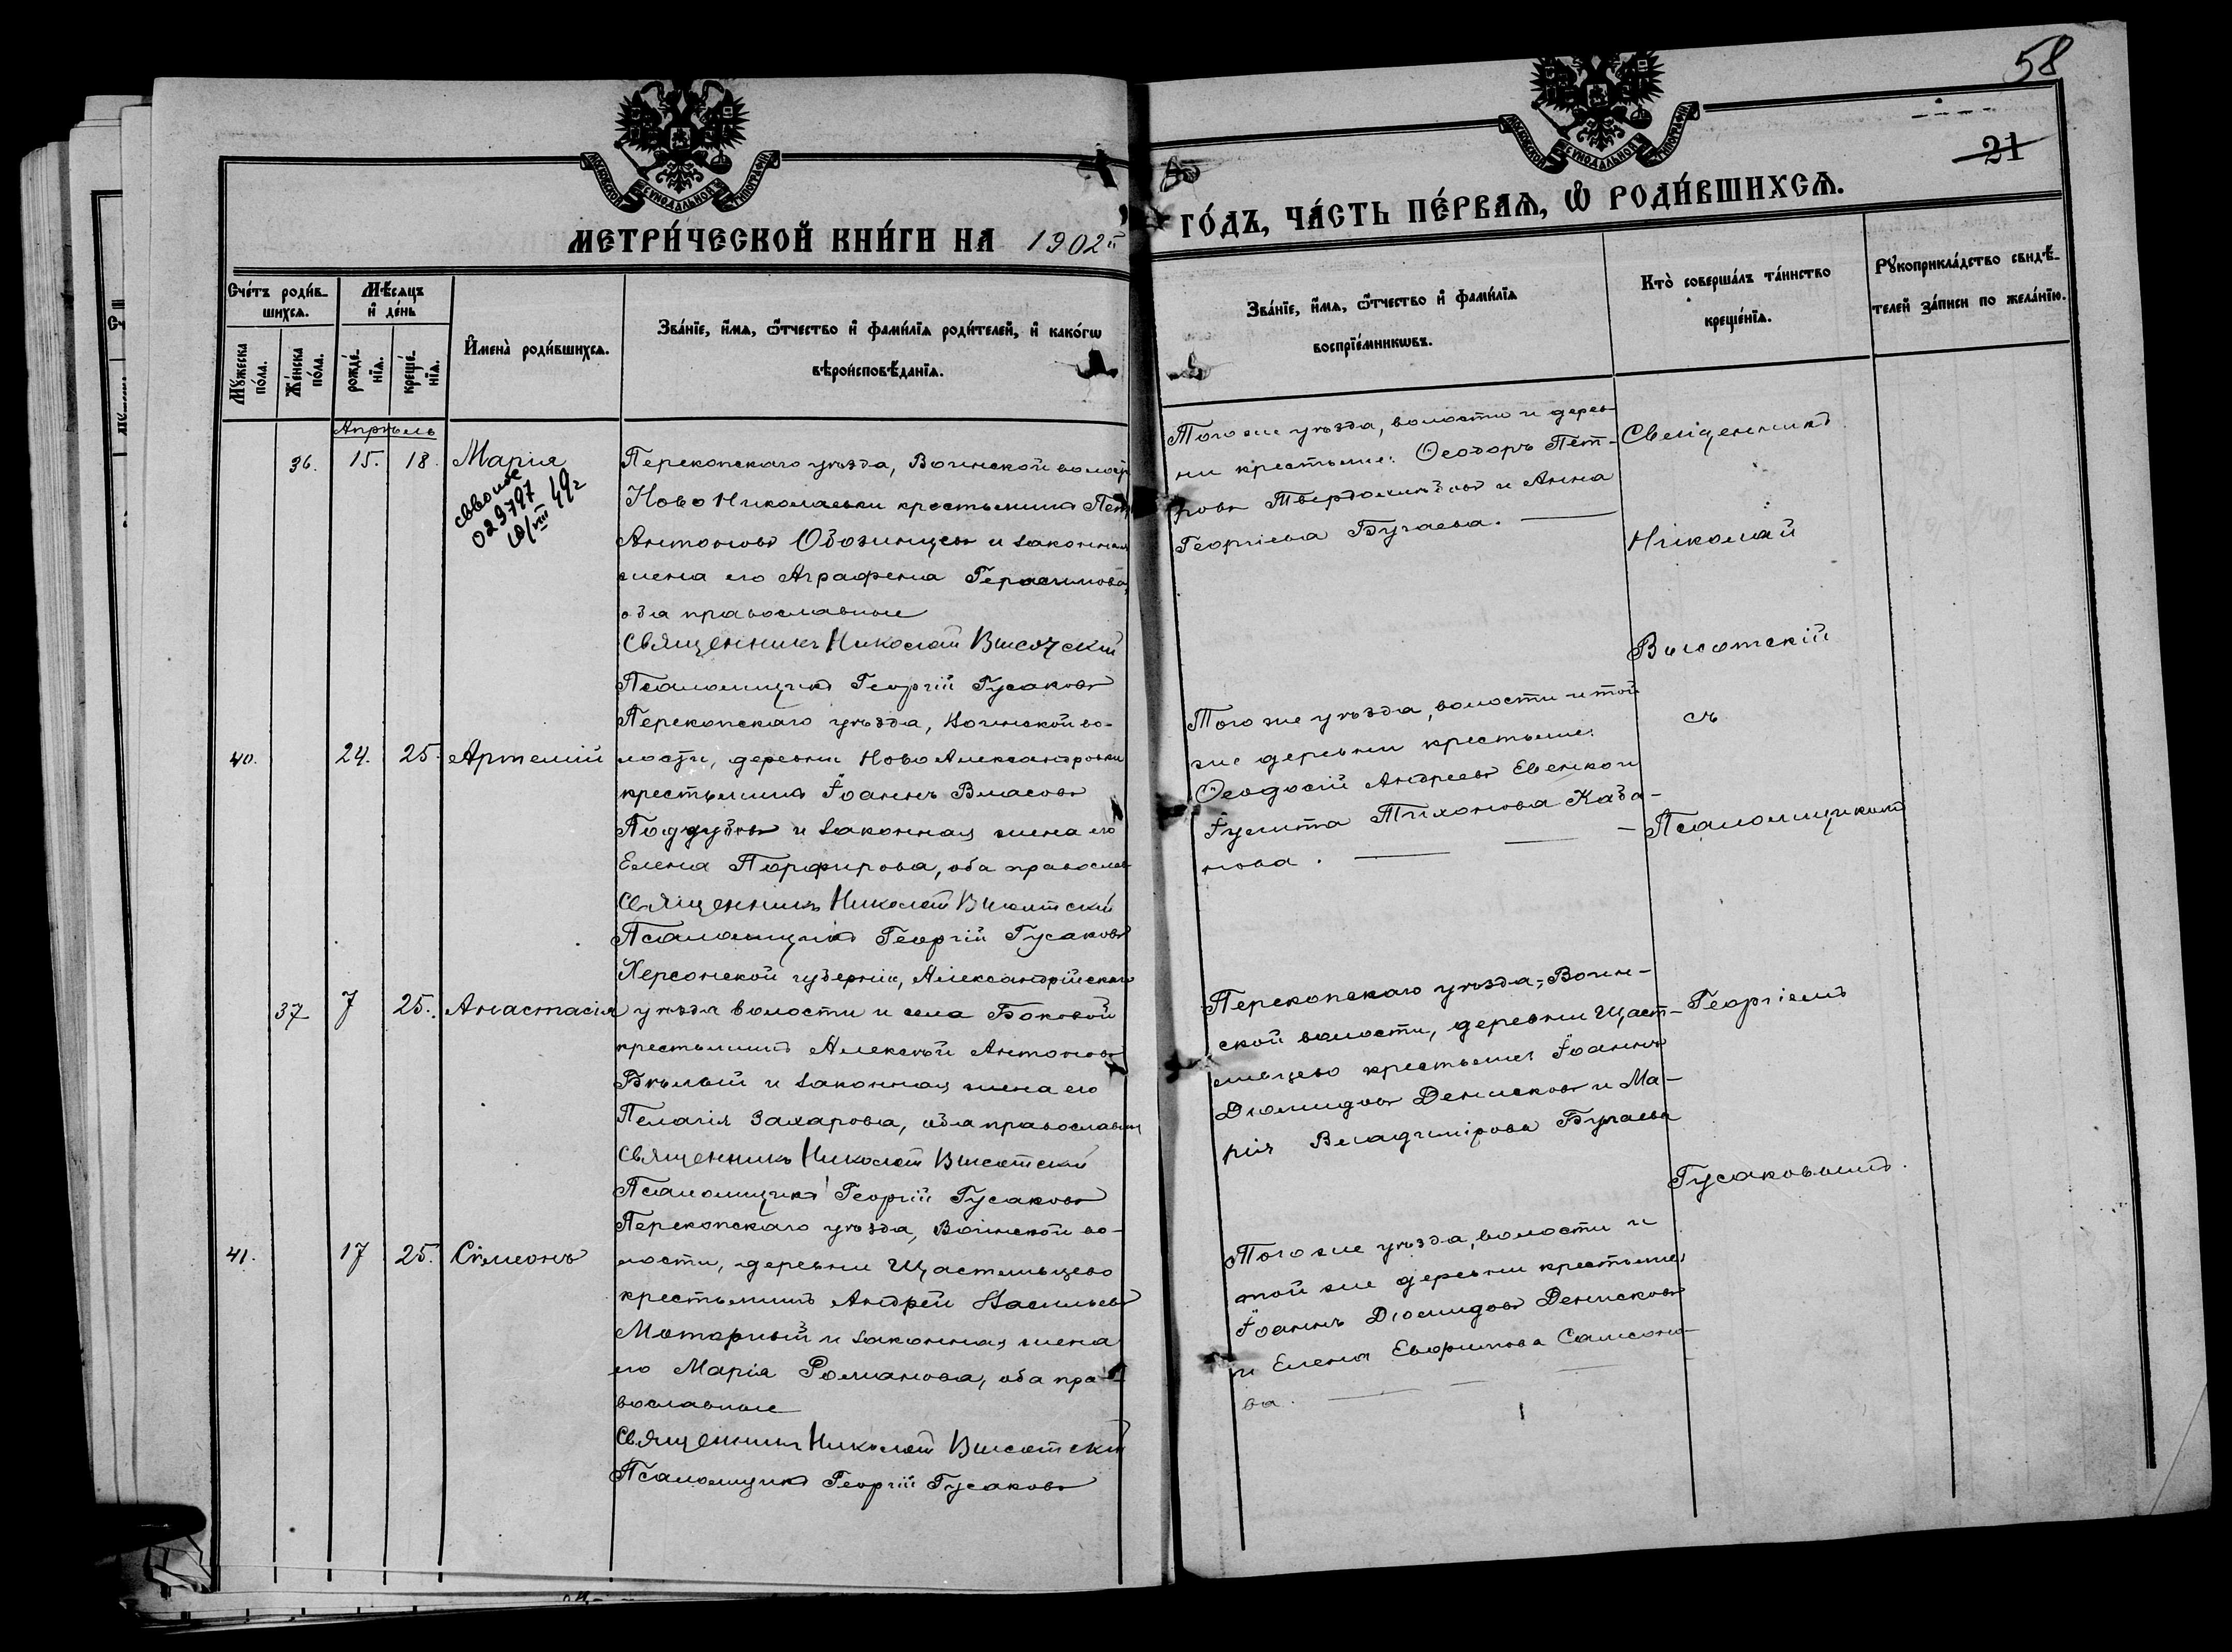 58
МОСКОВСКОЙ СѴНОДАЛЬНОЙ ТИПОГРАФІИ
МОСКОВСКОЙ СѴНОДАЛЬНОЙ ТИПОГРАФІИ
21
МЕТРИ́ЧЕСКОЙ КНИ́ГИ НА 1902й
ГО́ДЪ, ЧА́СТЬ ПЕ́РВАѦ, Ѿ РОДИ́ВШИХСѦ.
Сче́тъ роди́в-
шихсѧ.
Мꙋ́жеска по́ла.
Же́нска по́ла.
Мѣ́сѧцъ и҆ де́нь
рожде́-
нїѧ.
креще́-
нїѧ.
И҆мена̀ роди́вшихсѧ.
Зва́нїе, и҆́мѧ, ѻ҆́тчество и҆ фами́лїѧ роди́телей, и҆ како́гѡ
вѣроисповѣ́данїѧ.
Зва́нїе, и҆́мѧ, ѻ҆́тчество и҆ фами́лїѧ
воспрїе́мникѡвъ.
Кто̀ соверша́лъ та́инство
креще́нїѧ.
Рꙋкоприкла́дство свидѣ́-
телей за́писи по жела́нїю.
Апрѣль
36. 15. 18. Марія
029797
49г
Перекопскаго уѣзда, Воинской волост
Ново Николаевки крестьянинъ Пет
Антоновъ Обозинцевъ и законная
жена его Аграфена Герасимова,
оба православные
Священникъ Николай Высотский
Псаломщикъ Георгій Гусаковъ
Того же уѣзда, волости и дерев-
ни крестьяне: Ѳеодоръ Пет-
ровъ Твердохлѣбовъ и Анна
Георгіева Бугаева.
Священникъ
Николай
Высотскій
съ
Псаломщикомъ
Георгіемъ
Гусаковымъ.
40. 24. 25. Артемій
Перекопскаго уѣзда, Воинской во-
лости, деревни Ново Александровки
крестьянинъ Іоаннъ Власовъ
Поддубовъ и законная жена его
Елена Порфирова, оба православ
Священникъ Николай Высотский
Псаломщикъ Георгій Гусаковъ
Того же уѣзда, волости и той
же деревни крестьяне:
Ѳеодосій Андреевъ Евенко и
Іулита Тихонова Каба-
нова.
37 7 25. Анастасія
Херсонской губерніи, Александрійскаго
уѣзда волости и села Боковой
крестьянинъ Алексѣй Антоновъ
Бѣлый и законная жена его
Пелагія Захарова, оба православны
Священникъ Николай Высотский
Псаломщикъ Георгій Гусаковъ
Перекопскаго уѣзда, Воин-
ской волости, деревни Щаст-
ливцево крестьяне Іоаннъ
Дiомидовъ Денисковъ и Ма-
рія Владимірова Бугаева
41. 17 25. Сѵмеонъ
Перекопскаго уѣзда, Воинской во-
лости, деревни Щастливцево
крестьянинъ Андрей Васильевъ
Моторный и законная жена
его Марія Романова, оба пра-
вославные
Священникъ Николай Высотский
Псаломщикъ Георгій Гусаковъ
Того же уѣзда, волости и
той же деревни крестьяне
Іоаннъ Дiомидовъ Денисковъ
и Елена Евфимова Самсоно-
ва.